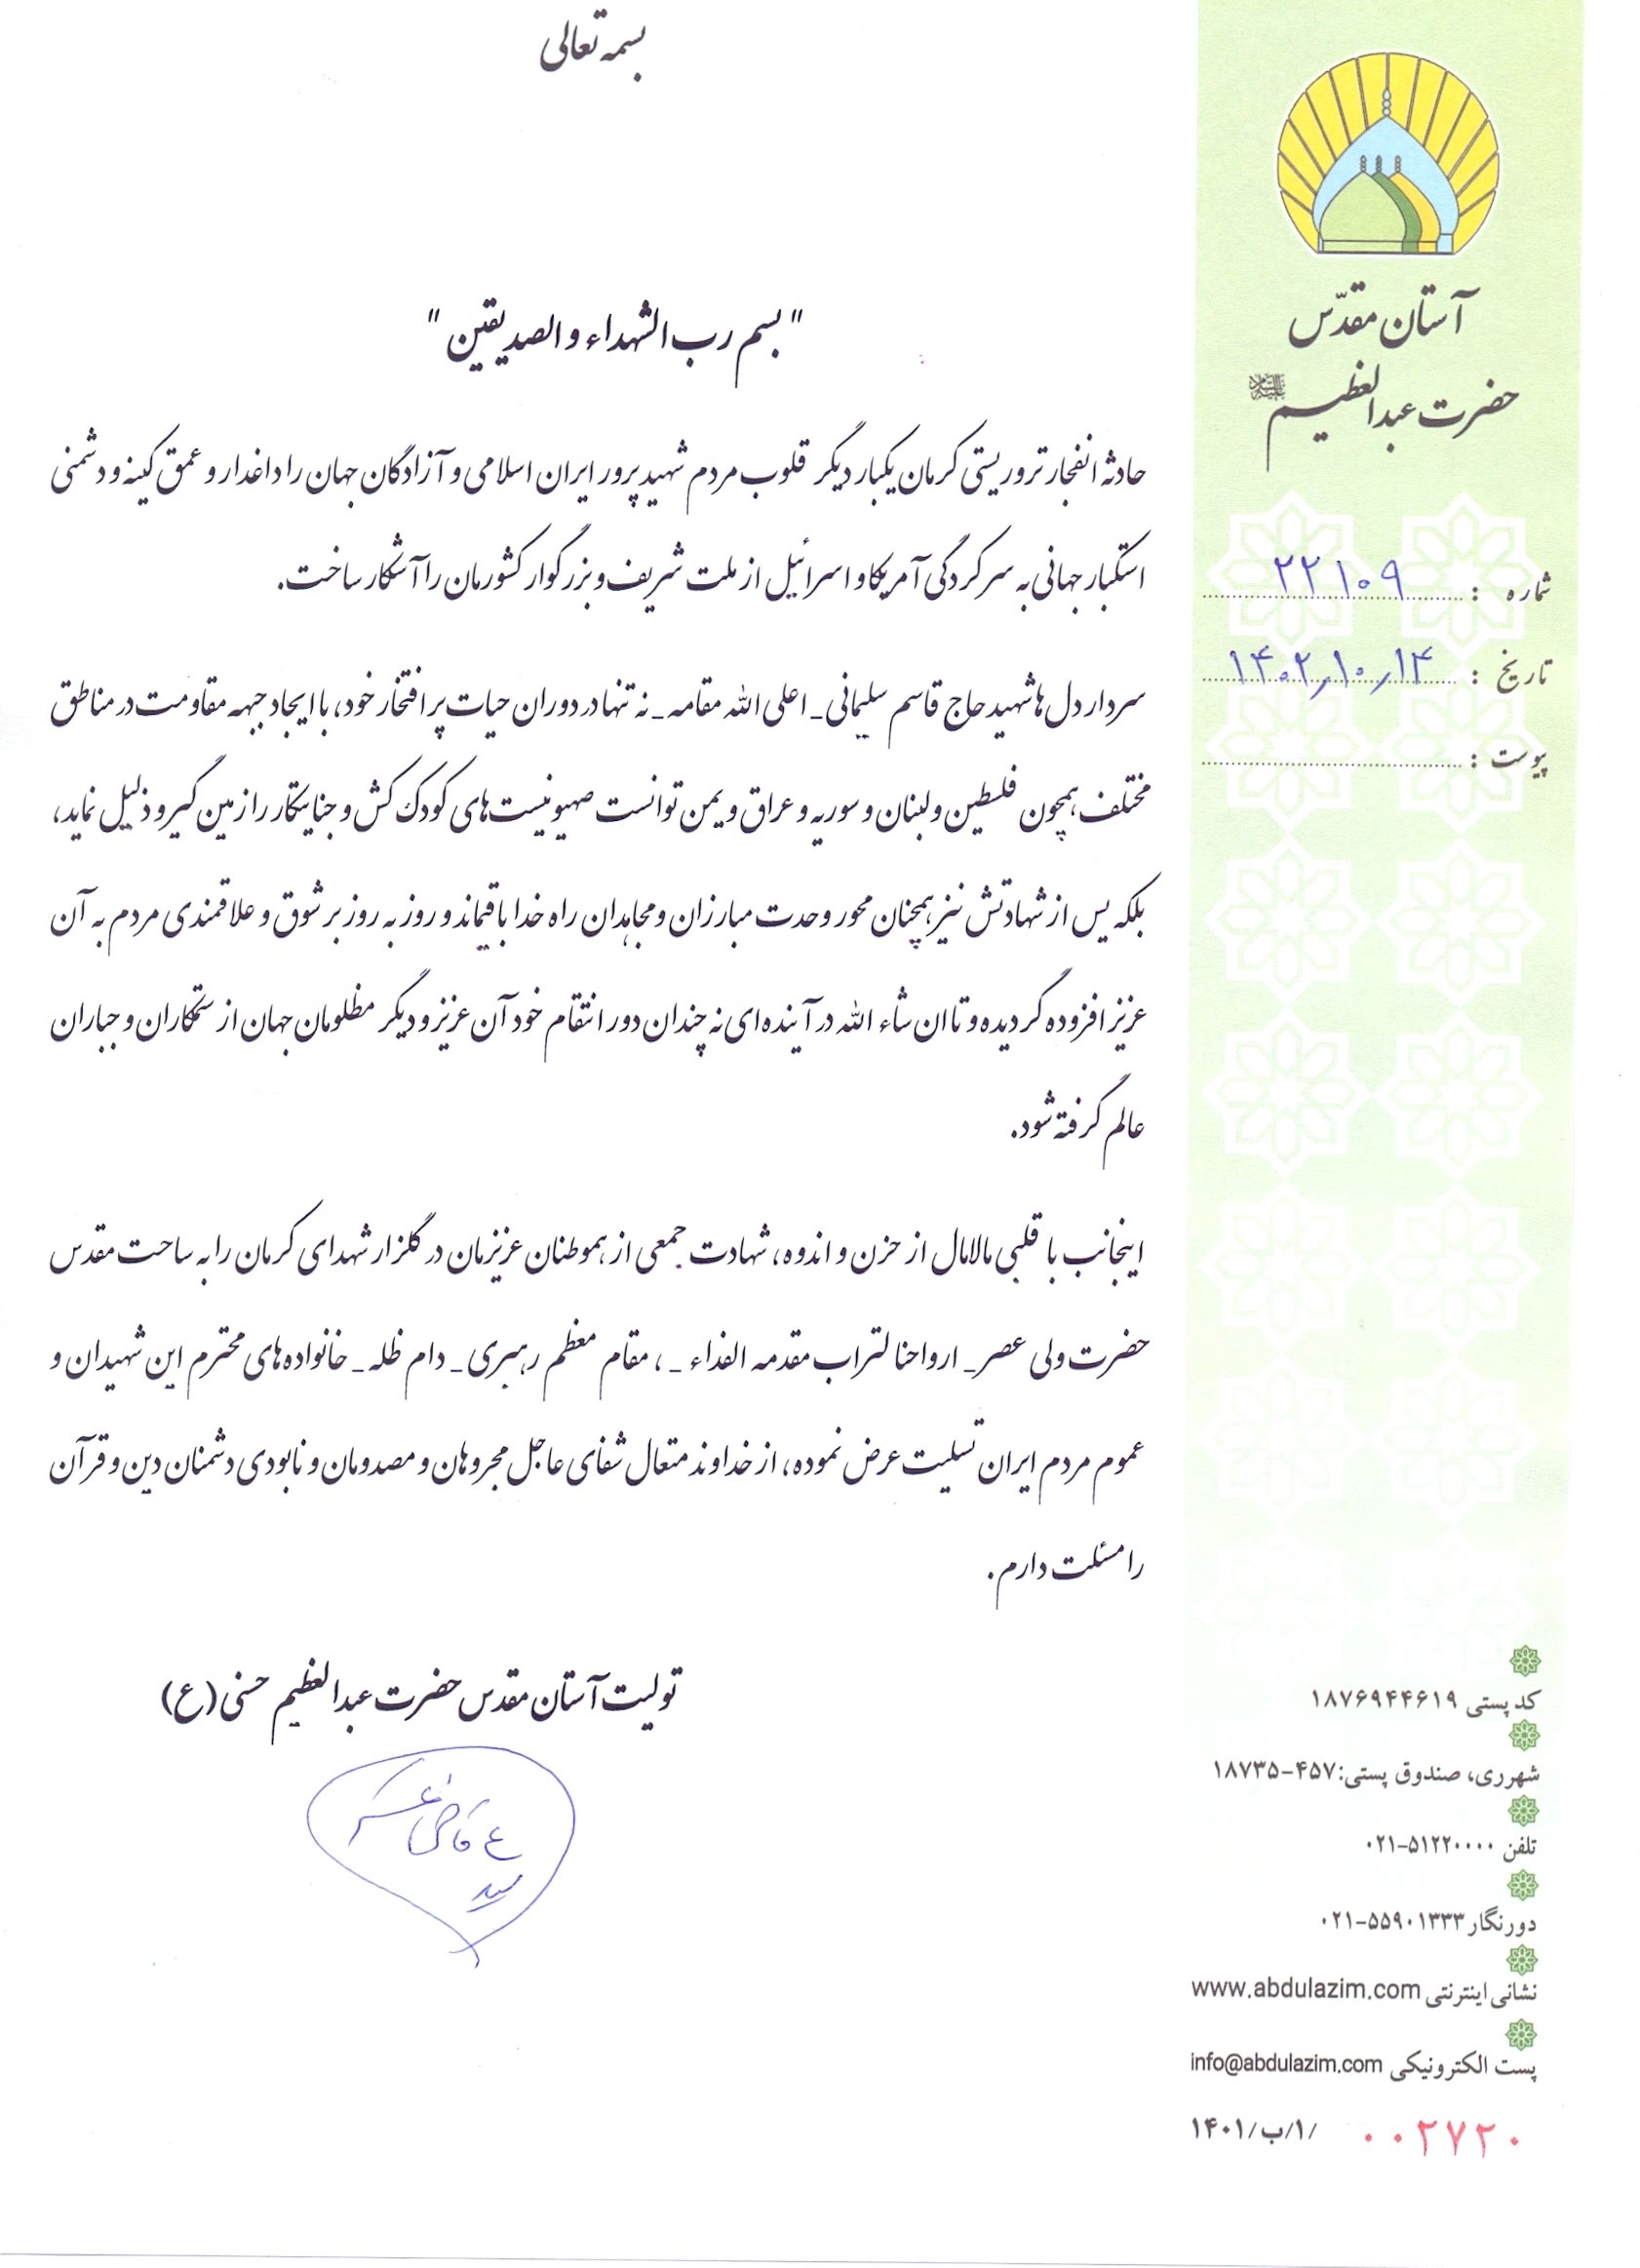 بسمه تعالی
آستان مقدّس
حضرت عبدالعظیم علیه‌السلام
شماره : ۲۲۱۰۹
تاریخ : ۱۴۰۲٫۱۰٫۱۴
پیوست :
" بسم رب الشهداء و الصدیقین "
حادثه انفجار تروریستی کرمان یکبار دیگر قلوب مردم شهید پرور ایران اسلامی و آزادگان جهان را داغدار و عمق کینه و دشمنی
استکبار جهانی به سرکردگی آمریکا و اسرائیل از ملت شریف و بزرگوار کشورمان را آشکار ساخت.
سردار دل ها شهید حاج قاسم سلیمانی_ اعلی الله مقامه_ نه تنها در دوران حیات پر افتخار خود، با ایجاد جبهه مقاومت در مناطق
مختلف همچون فلسطین و لبنان و سوریه و عراق و یمن توانست صهیونیست‌های کودک کش و جنایتکار را زمین گیر و ذلیل نماید،
بلکه پس از شهادتش نیز همچنان محور وحدت مبارزان و مجاهدان راه خدا باقیماند و روز به روز بر شوق و علاقمندی مردم به آن
عزیز افزوده گردیده و تا ان شاء الله در آینده ای نه چندان دور انتقام خود آن عزیز و دیگر مظلومان جهان از ستمکاران و جباران
عالم گرفته شود.
اینجانب با قلبی مالامال از حزن و اندوه، شهادت جمعی از هموطنان عزیزمان در گلزار شهدای کرمان را به ساحت مقدس
حضرت ولی عصر_ ارواحنا لتراب مقدمه الفداء _ ، مقام معظم رهبری_ دام ظله_ خانواده‌های محترم این شهیدان و
عموم مردم ایران تسلیت عرض نموده، از خداوند متعال شفای عاجل مجروهان و مصدومان و نابودی دشمنان دین و قرآن
را مسئلت دارم.
تولیت آستان مقدس حضرت عبدالعظیم حسنی (ع)
سید
ع قاضی عسکر
کد پستی ۱۸۷۶۹۴۴۶۱۹
شهرری، صندوق پستی:۴۵۷-۱۸۷۳۵
تلفن ۵۱۲۲۰۰۰۰-۰۲۱
دورنگار ۵۵۹۰۱۳۳۳-۰۲۱
نشانی اینترنتی www.abdulazim.com
پست الکترونیکی info@abdulazim.com
۰۰۲۷۲۰ /۱/ب/۱۴۰۱